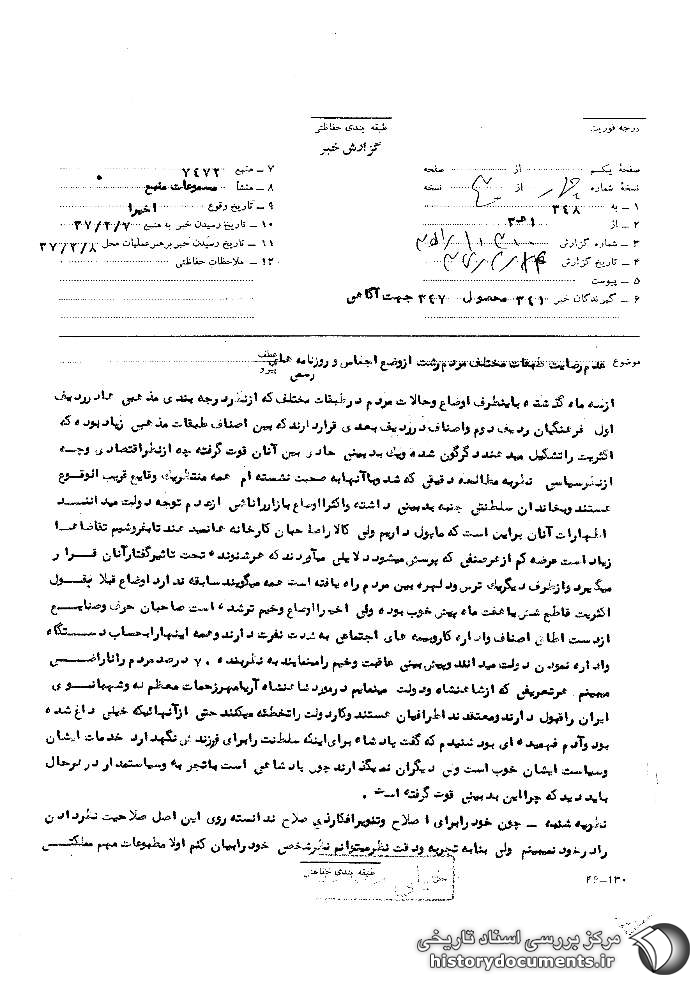 درجه فوریت
طبقه بندی حفاظتی
گزارش خبر
صفحهٔ یکم از صفحه
نسخهٔ شماره چهار از نسخه
۱ ــ به ۳۴۸
۲ ــ از ۳ ه‍ ۱
۳ ــ شماره گزارش
۴ ــ تاریخ گزارش
۵ ــ پیوست
۶ ــ گیرندگان خبر ۳۴۱ محصول ۳۴۷ جهت آگاهی
۷ ــ منبع ۷۴۷۲
۸ ــ منشأ مسموعات منبع
۹ ــ تاریخ وقوع اخیرا
۱۰ ــ تاریخ رسیدن خبر به منبع ۳۷/۲/۷
۱۱ ــ تاریخ رسیدن خبر برهبر عملیات محل ۳۷/۲/۸
۱۲ ــ ملاحظات حفاظتی
موضوع عدم رضایت طبقات مختلف مردم رشت از وضع اجناس و روزنامه های رسمی
عطف
پیرو
از سه ماه گذشته باینطرف اوضاع وحالات مردم در طبقات مختلف که از نظر درجه بندی مذهبی ها در ردیف
اول فرهنگیان ردیف دوم واصناف در ردیف بعدی قرار دارند که بین اصناف طبقات مذهبی زیاد بوده که
اکثریت را تشکیل میدهند دگرگون شده ویک بدبینی حاد و بین آنان قوت گرفته چه از نظر اقتصادی وچه
از نظر سیاسی نظر به مطالعه دقیقی که شد وبا آنها به صحبت نشسته ام همه منتظر یک وقایع قریب الوقوع
هستند وبخاندان سلطنتی جنبه بدبینی داشته واکثرا اوضاع بازار را ناشی از عدم توجه دولت میدانند
اظهارات آنان براین است که ما پول داریم ولی کالا را صاحبان کارخانه ها نمیدهند تا بفروشیم تقاضاها
زیاد است عرضه کم از هر صنفی که پرسش میشود دلایلی میآورند که هر شنونده تحت تاثیر گفتار آنان قرار
میگیرد و از طرف دیگر یک ترس ودلهره بین مردم راه یافته است همه میگویند سابقه ندارد اوضاع قبلا بقول
اکثریت قاطع شش یا هفت ماه پیش خوب بوده ولی اخیرا اوضاع وخیم تر شده است صاحبان حرف وصنایع
از دست اطاق اصناف واداره کار وبیمه های اجتماعی به شدت نفرت دارند وهمه اینها را بحساب دستگاه
واداره نمودن دولت میدانند وپیش بینی عاقبت وخیم را مینمایند به نظر بنده ۷۰ درصد مردم را ناراضی
میبینم هر تعریفی که از شاهنشاه ودولت مینمایم در مورد شاهنشاه آریامهر زحمات معظم له وشهبانوی
ایران را قبول دارند ومعتقدند اطرافیان هستند وکار دولت را تخطئه میکنند حتی از آنهائیکه خیلی داغ شده
بود وآدم فهمیده ای بود شنیدم که گفت پادشاه برای اینکه سلطنت را برای فرزندش نگهدارد خدمات ایشان
وسیاست ایشان خوب است ولی دیگران نمیگذارند چون پادشاهی است با تجربه وسیاستمدار در هرحال
باید دید که چرا این بدبینی قوت گرفته است .
نظریه شنبه ــ چون خود را برای اصلاح وتنویر افکار ذی صلاح ندانسته روی این اصل صلاحیت نظر دادن
را در خود نمیبینم ولی بنا به تجربه ودقت نظر میتوانم نظر شخصی خود را بیان کنم اولا مطبوعات مهم مملکتی
طبقه بندی حفاظتی
۲۴-۱۳۰
مرکز بررسی اسناد تاریخی
historydocuments.ir